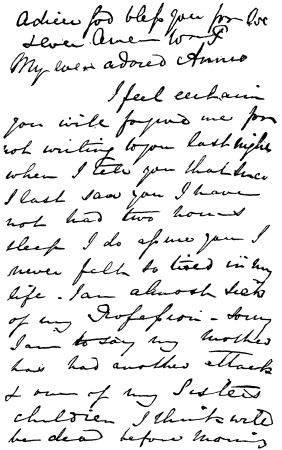 adieu God bless you for we
never
My ever adored Annie
I feel certain
you will forgive me for
not writing to you last night
when I tell you that since
I last saw you I have
not had two hours
sleep I do assure you I
never felt so tired in my
life - I am almost sick
of my Profession - sorry
I am to say my mother
has had another attack
& one of my Sisters
children I think will
be dead before Morning